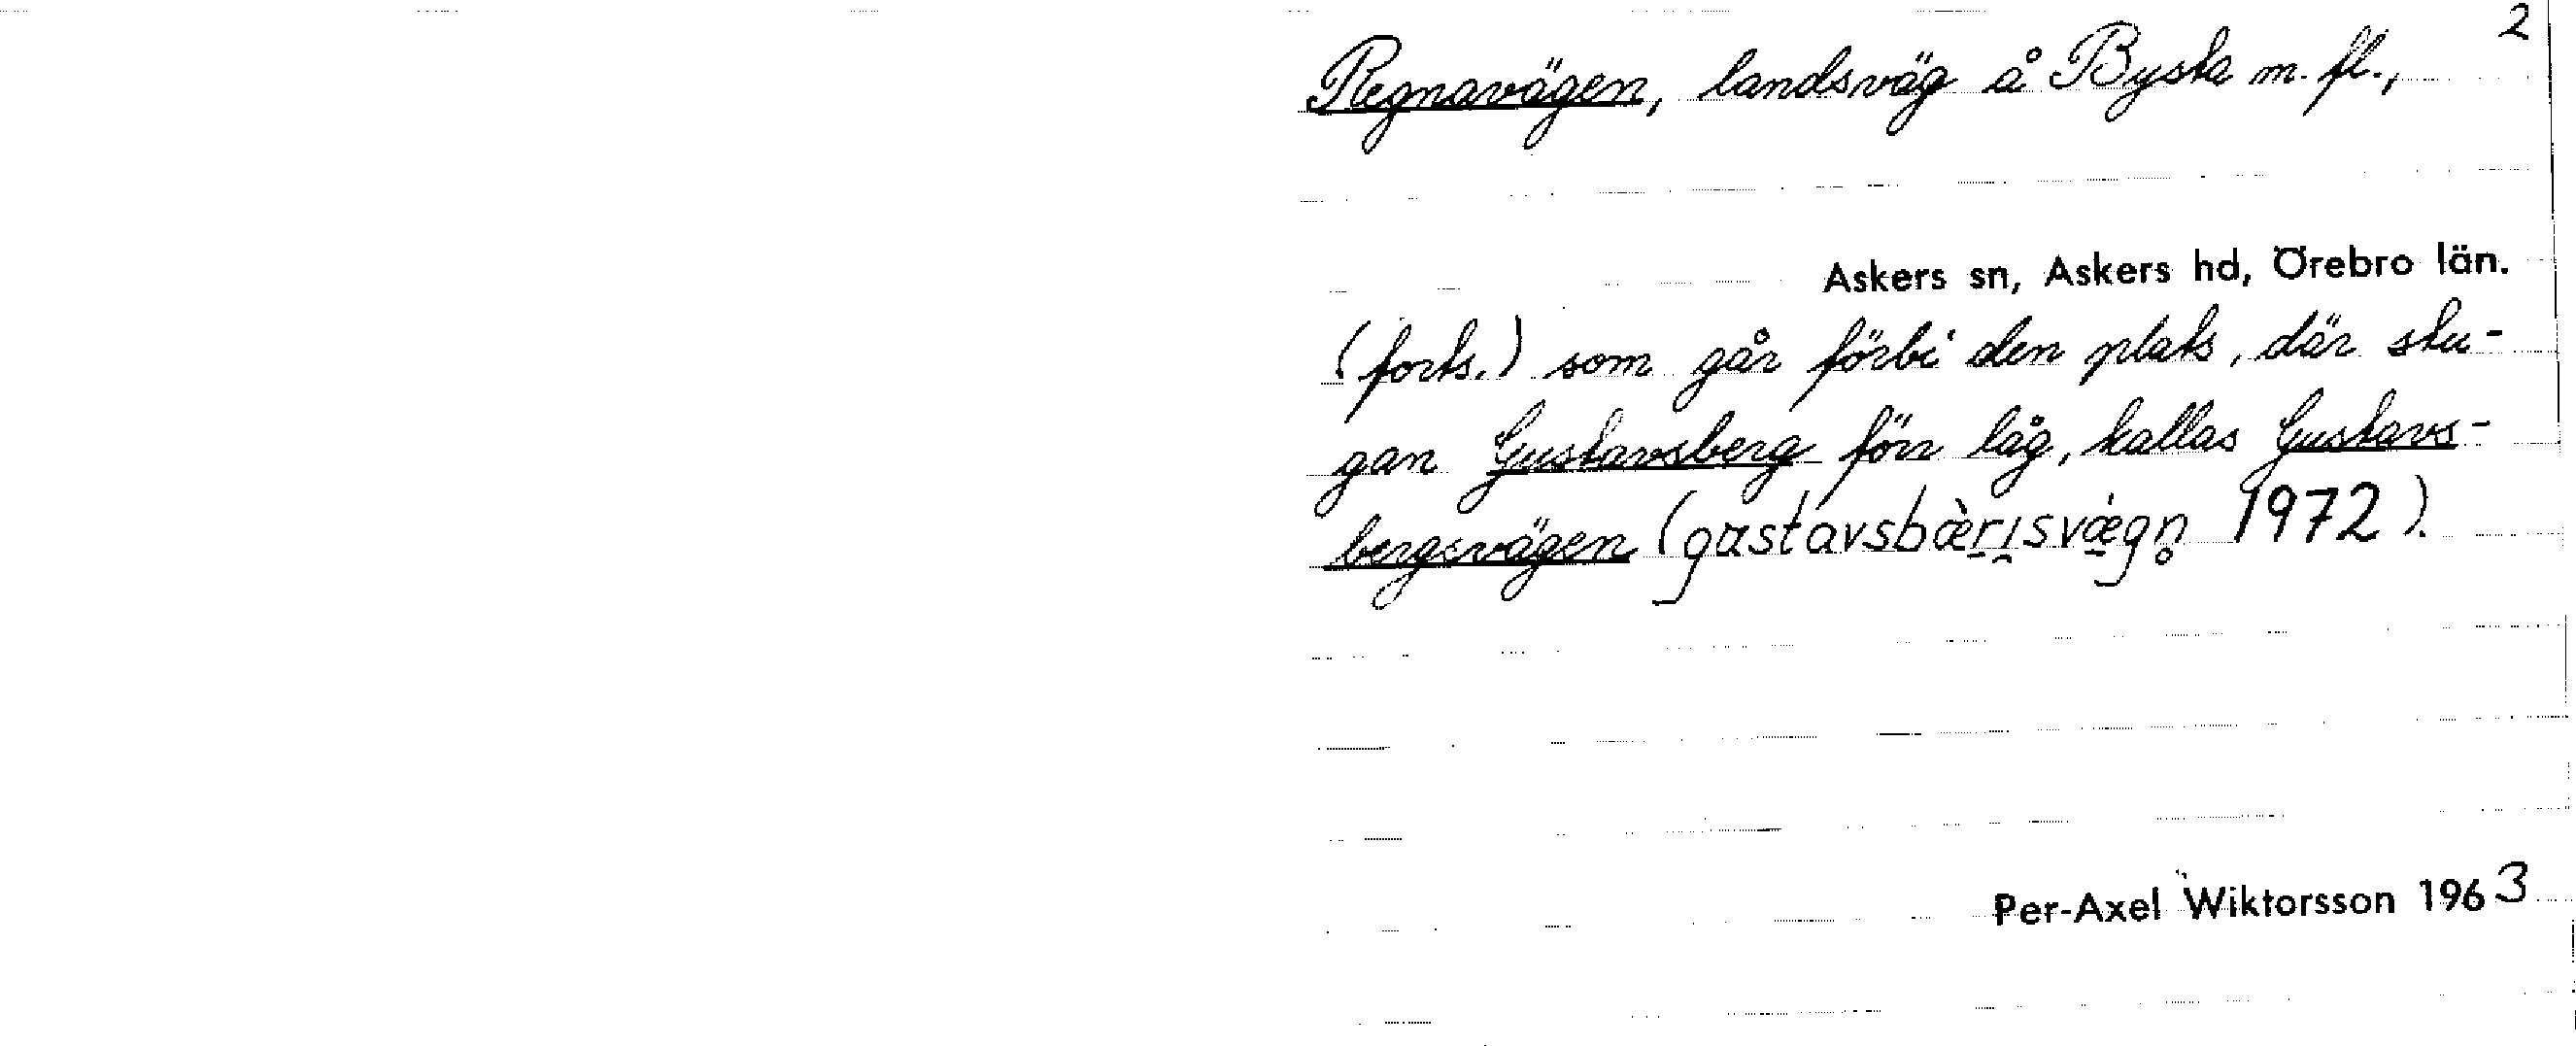 2
Regnavägen, landsväg å Bysta m. fl.,
Askers sn, Askers hd, Örebro län.
(forts.) som går förbi den plats, där stu-
gan Gustavsberg förr låg, kallas Gustavs-
bergsvägen (gustavsbæ̀rɪsvæ̀gn̥ 1972).
Per-Axel Wiktorsson 1963